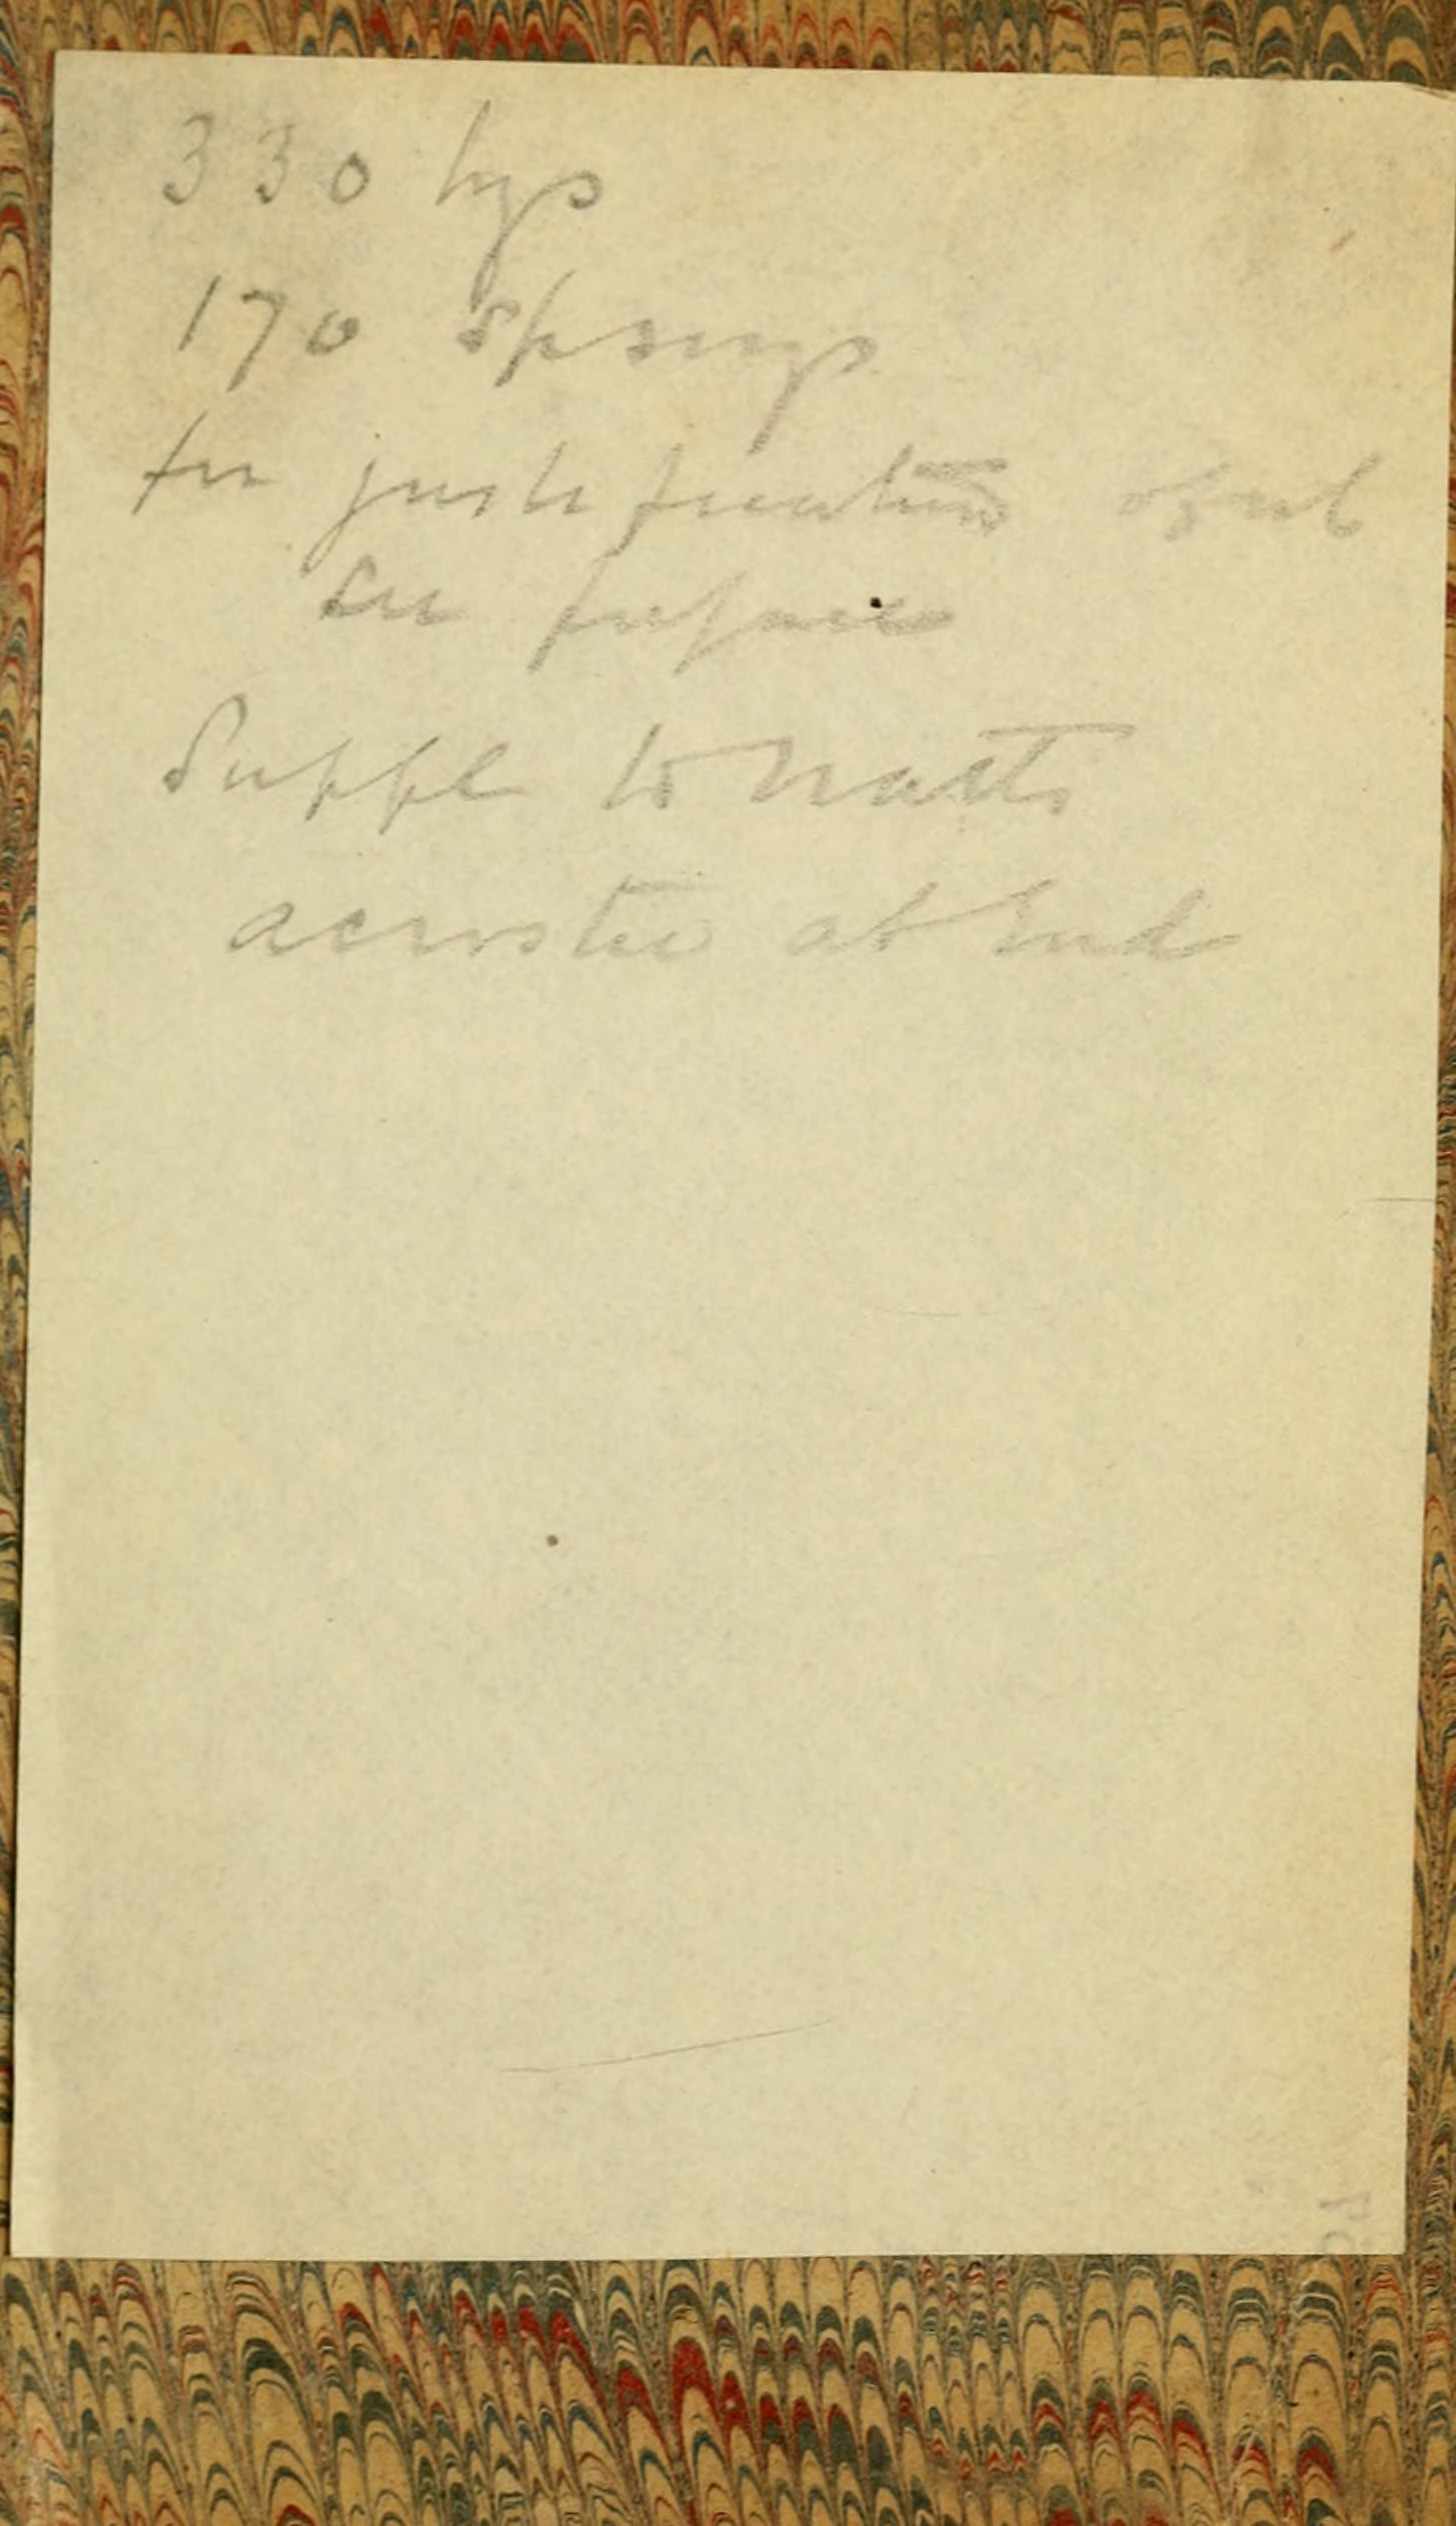 330 hys
170 Sp songs
for justification of pub
See preface
Suppl to Watts
acrostic at End